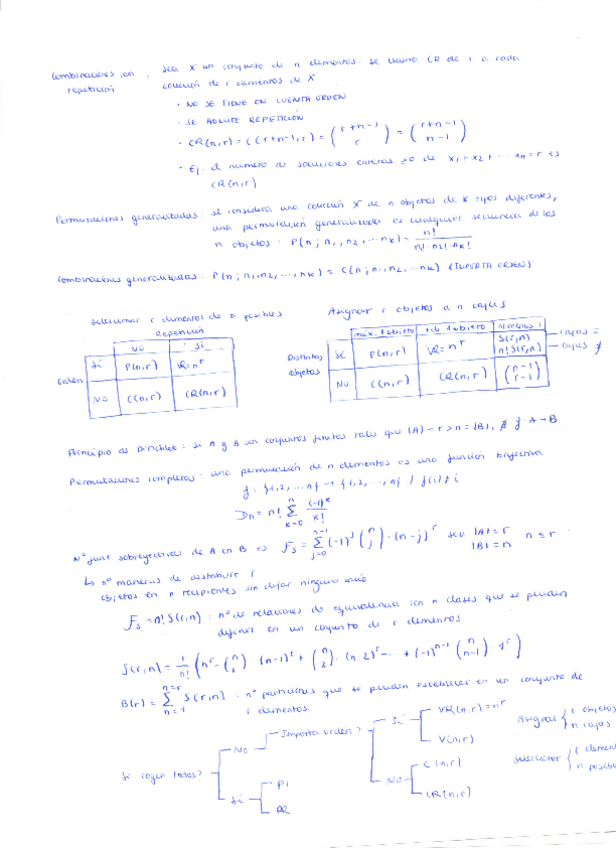 Combinaciones con repetición: sea X un conjunto de n elementos. Se llama CR de r a cada
colección de r elementos de X
· NO SE TIENE EN CUENTA ORDEN
· SE ADMITE REPETICIÓN
· CR(n,r) = C(r+n-1, r) = (r+n-1 / r) = (r+n-1 / n-1)
· Ej. el número de soluciones enteras ≥0 de x₁+x₂+... xₙ=r es
CR(n,r)
Permutaciones generalizadas: se considera una colección X de n objetos de K tipos diferentes,
una permutación generalizada es cualquier secuencia de los
n objetos. P(n; n₁, n₂, ... nₖ) = n! / n₁! · n₂! · nₖ!
Combinaciones generalizadas: P(n; n₁, n₂, ..., nₖ) = C(n; n₁, n₂, ... nₖ) (IMPORTA ORDEN)
Seleccionar r elementos de n posibles
Repetición
NO SÍ
Orden
SÍ P(n,r) VR=nʳ
NO C(n,r) CR(n,r)
Asignar r objetos a n cajas
máx. 1 objeto + de 1 objeto mínimo 1
Distintos objetos
SÍ P(n,r) VR=nʳ S(r,n) cajas =
n! S(r,n) cajas ≠
NO C(n,r) CR(n,r) (n-1 / r-1)
Principio de Dirichlet: si A y B son conjuntos finitos tales que |A| = r > n = |B|, ∄ f A→B
Permutaciones completas: una permutación de n elementos es una función biyectiva
f: {1,2, ... n} → {1,2, ..., n} / f(i) ≠ i
Dₙ = n! Σ k=0 n (-1)ᵏ / k!
Nº func sobreyectivas de A en B es Fₛ = Σ j=0 n-1 (-1)ʲ (n / j) · (n-j)ʳ sea |A|=r |B|=n n ≤ r
↳ nº maneras de distribuir r
objetos en n recipientes sin dejar ninguno vacío
Fₛ = n! S(r,n) : nº de relaciones de equivalencia con n clases que se pueden
definir en un conjunto de r elementos
S(r,n) = 1/n! (nʳ - (n / 1) (n-1)ʳ + (n / 2) · (n-2)ʳ - ... + (-1)ⁿ⁻¹ (n / n-1) 1ʳ)
B(r) = Σ n=1 n=r S(r,n) : nº particiones que se pueden establecer en un conjunto de
r elementos.
Se cogen todos?
NO Importa orden?
SÍ VR(n,r)=nʳ
V(n,r)
NO C(n,r)
CR(n,r)
SÍ
PR
Asignar { r objetos
n cajas
Seleccionar { r
n